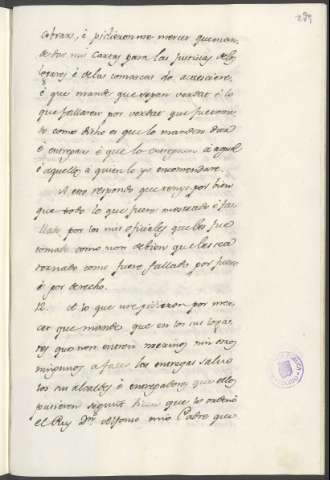 289
cobrar, è pidieronme merced que man-
dar mis Cartas para las Justicias de los
logares è de las comarcas do acaesciere,
è que mande que sepan verdat è lo
que fallaren por verdat que fue toma-
do como dicho es que lo manden dar
è entregar è que lo entreguen à aquel
ò aquellos à quien lo yo encomendare.
A esto respondo que tengo por bien
que todo lo que fuere mostrado è fa-
llado por los mis oficiales que les fue
tomado como non debien que les sea
tornado como fuere fallado por fuero
è por derecho.
12. A lo que me pidieron por mer-
cet que mande que en los sus loga-
res que non entren merinos nin otros
ningunos a facer las entregas salvo
los sus alcalles è entregadores que ellos
pusieren segunt dicen que lo ordenò
el Rey Dn. Alfonso mio Padre que